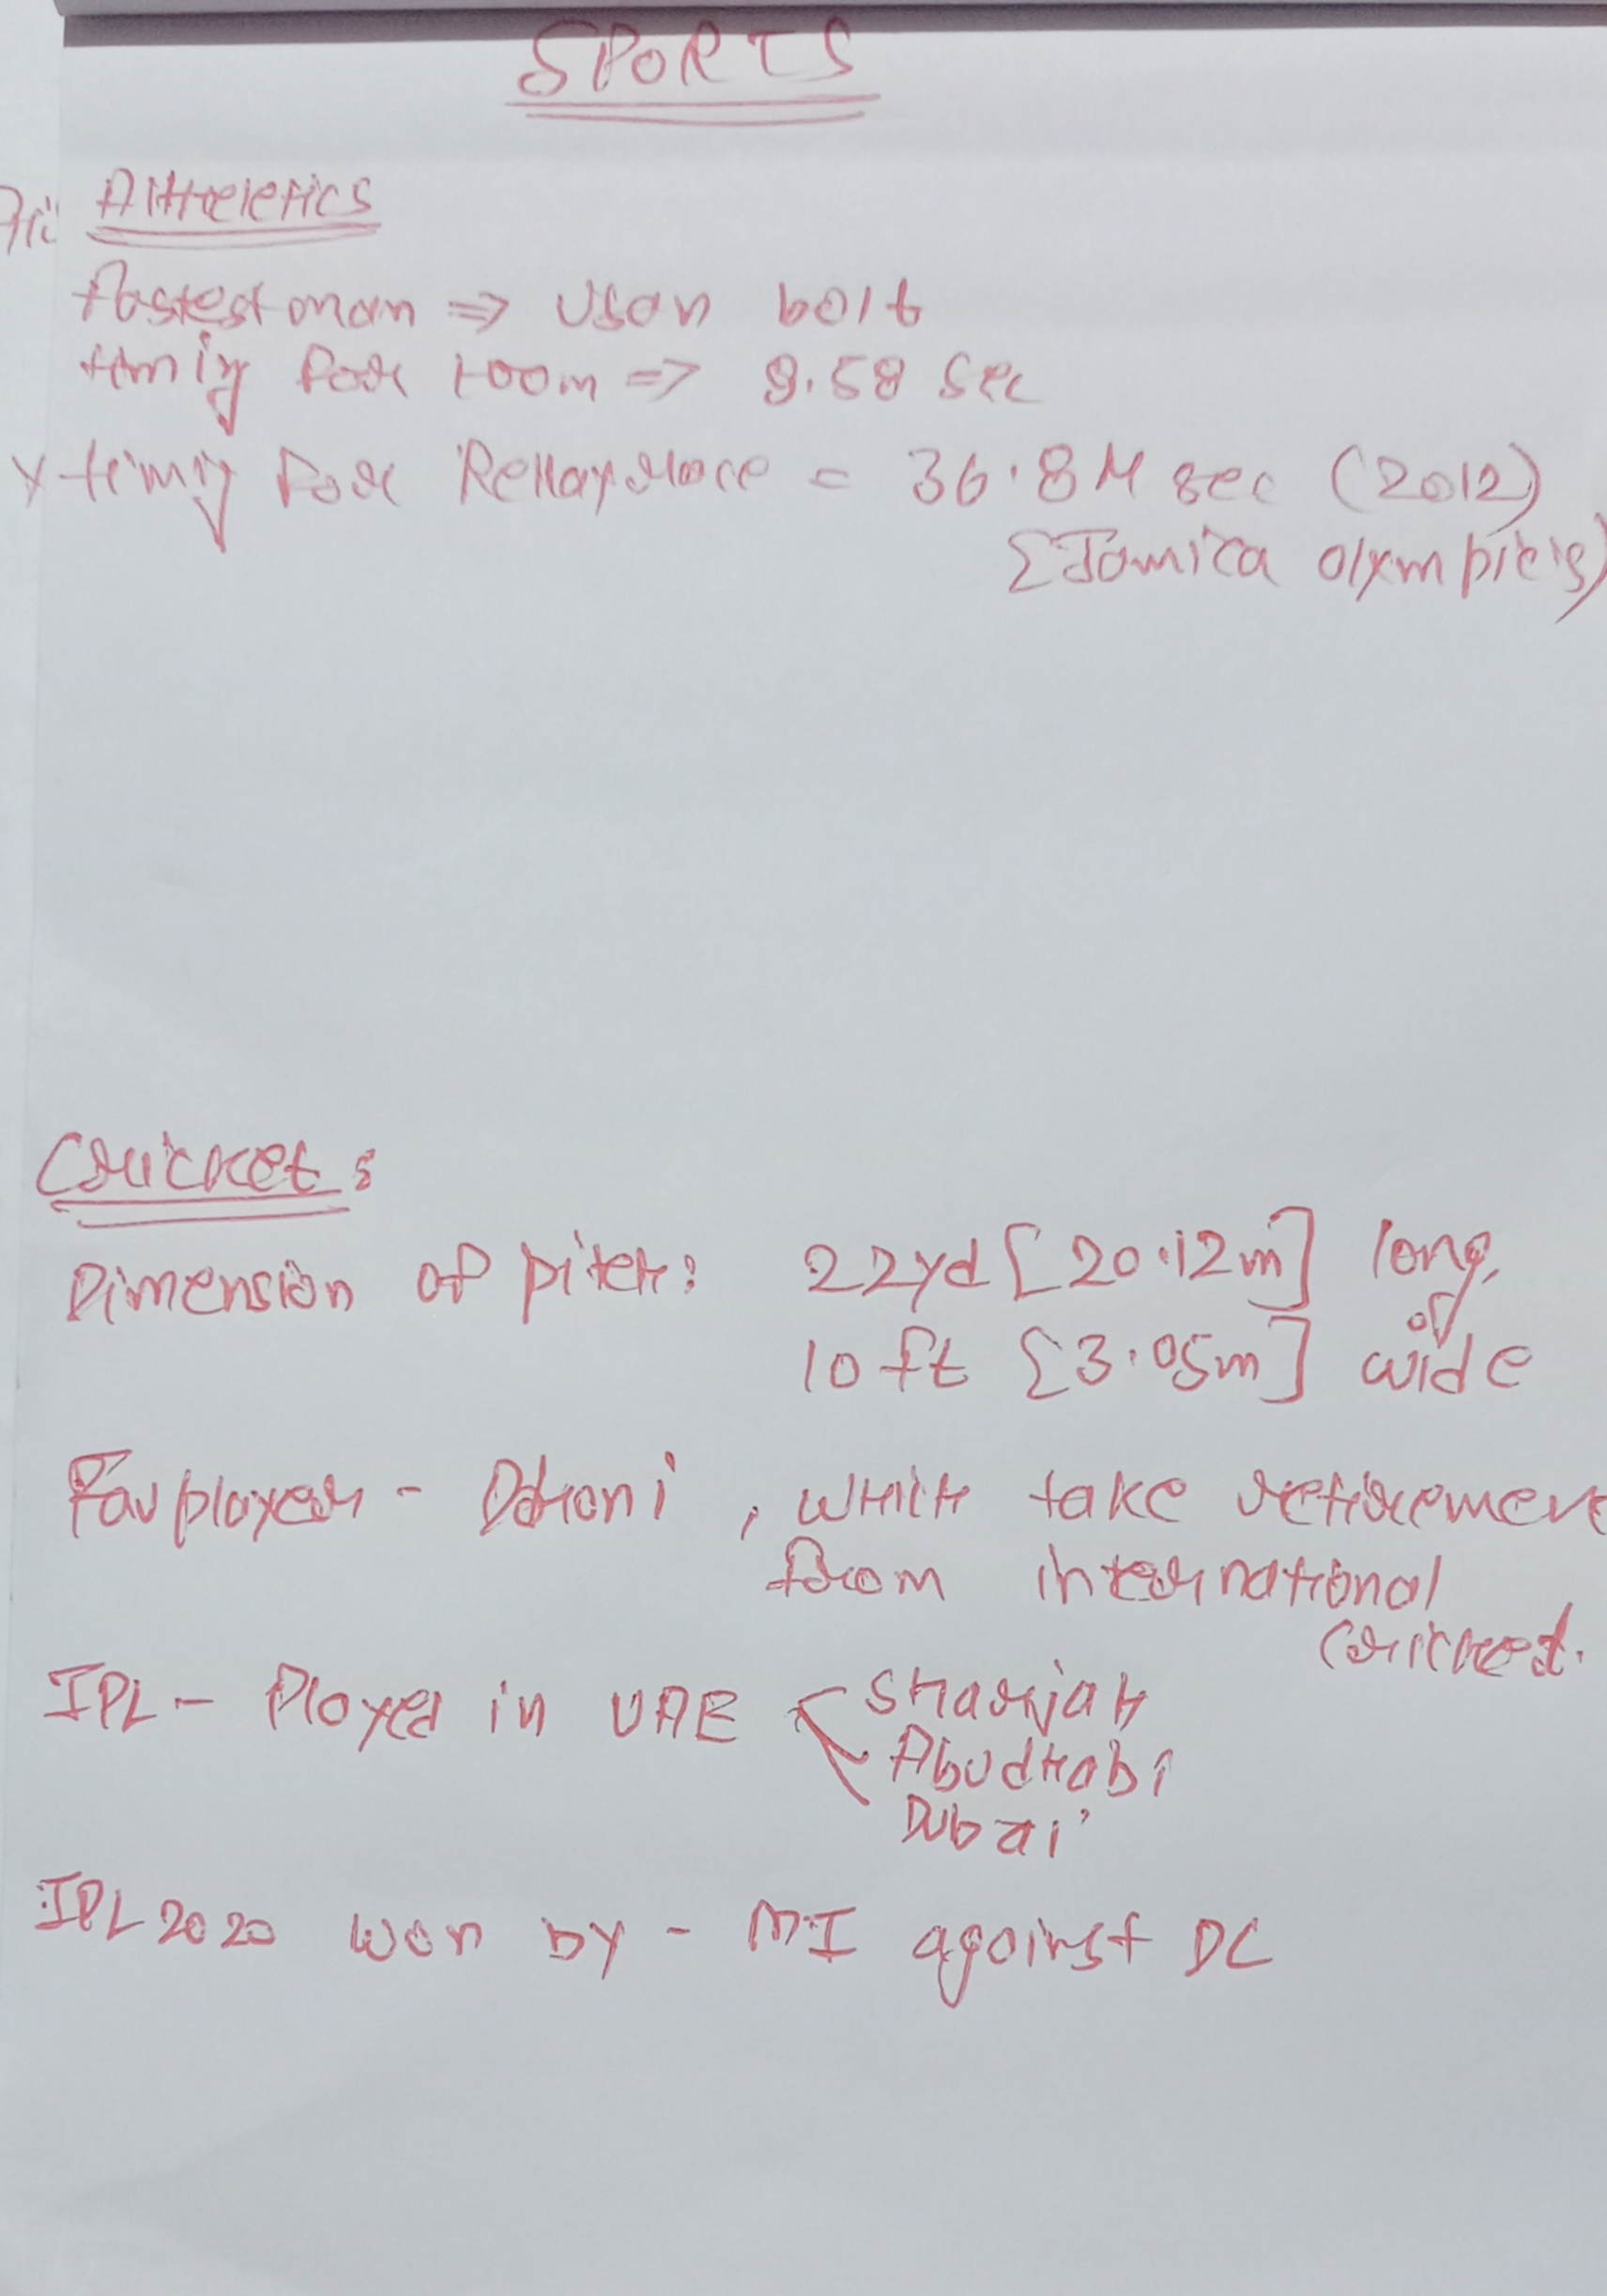 SPORTS
Athheletics
fastest man => Usan bolt
timig for 100m => 9.58 sec
timig for Rellay race = 36.84 sec (2012)
[Jamica olympicis)
Cricket:
Dimension of pitch: 22yd [20.12m] long,
of
10 ft [3.05m] wide
Fav player - Dhoni, which take retirement
from international
cricket.
IPL - Played in UAE < Sharjah
Abudhabi
Dubai
IPL 2020 won by - MI against DC